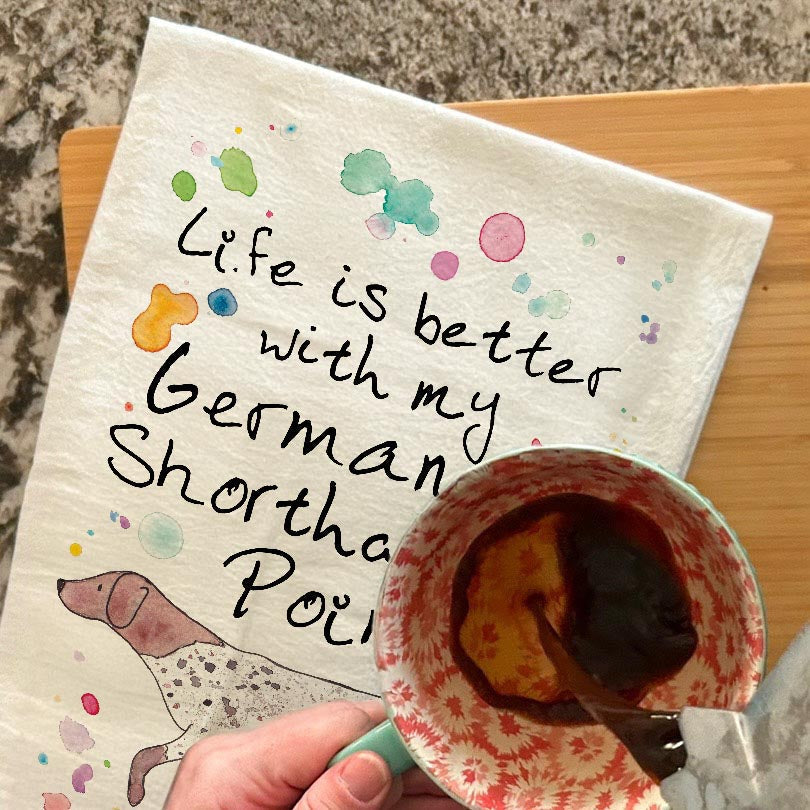 Life is better
with my
German
Shortha
Poi